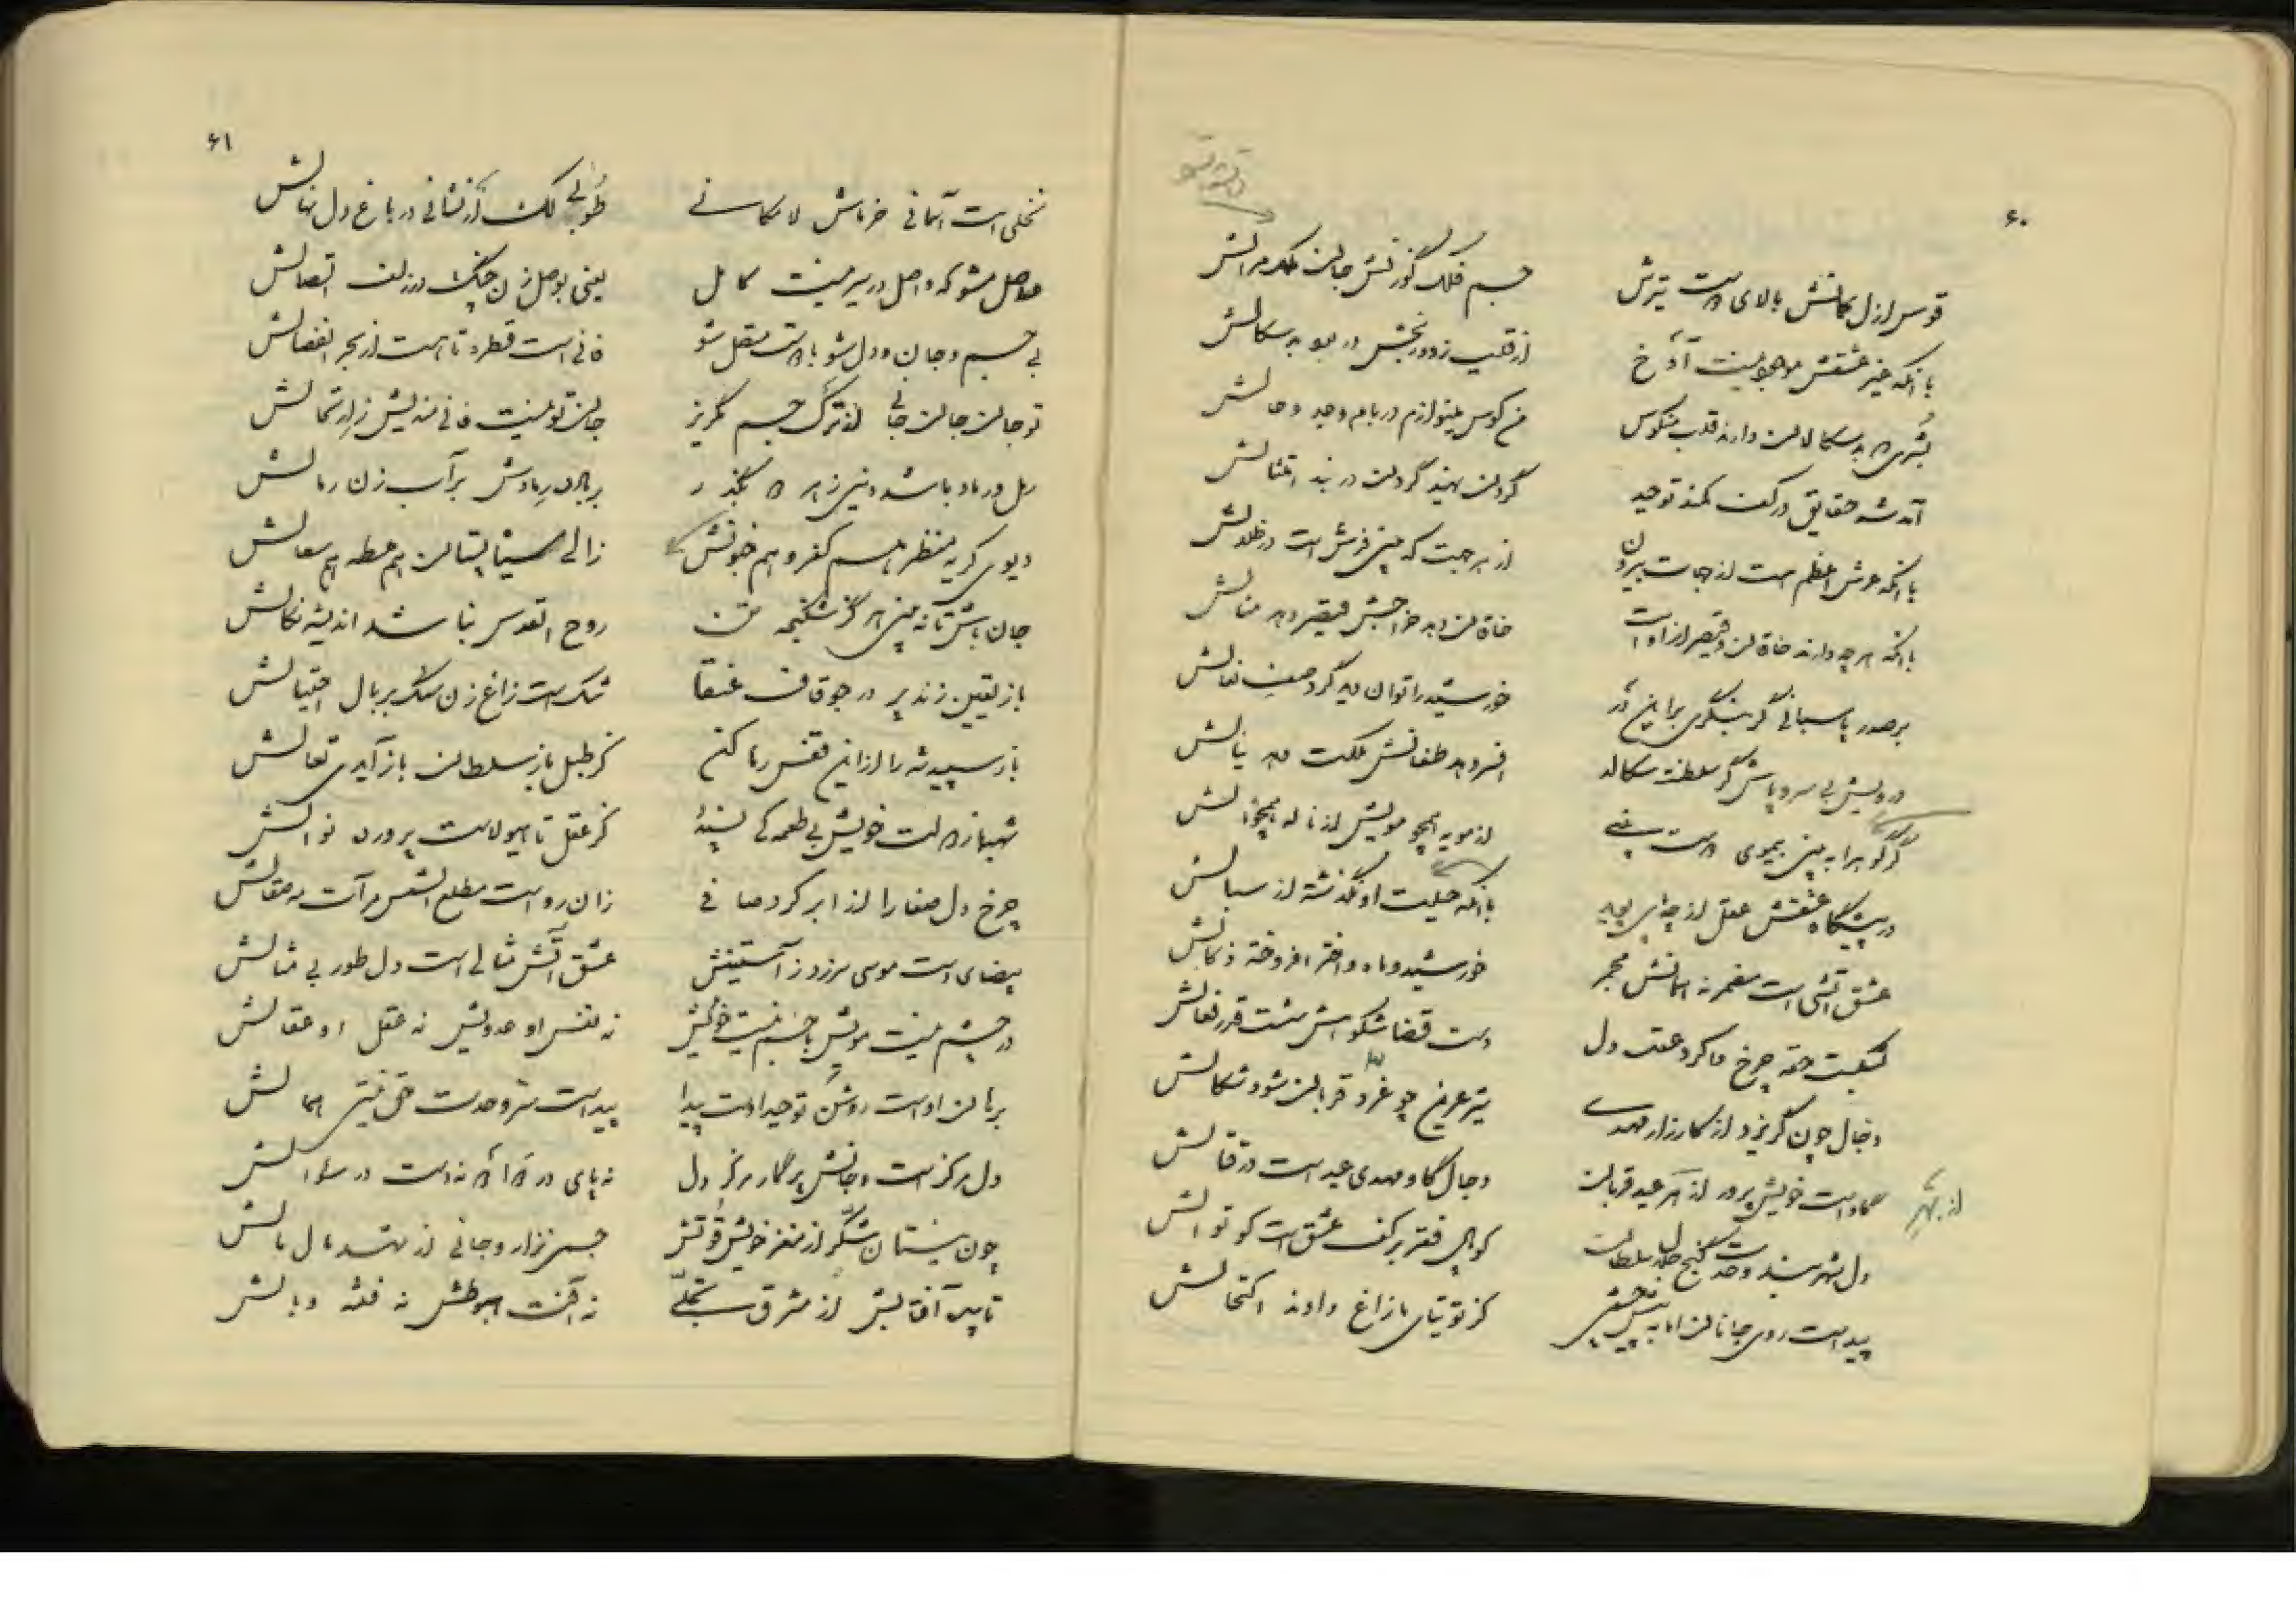 ۶۰
قوس ازل کمانش بالای لاست تیرش جسم فلک گوزنش جان ملک مرالش
با آنکه غیر عشقش موجود نیست آوخ از قلب زدود نجش در
بشری لا به سکالان دارند قلب منکوس من کوس مینوازم در بام وجد و حالش
آمد شه حقایق در کف کمند توحید گردن نهید گردان در بند امتثالش
با آنکه عرش اعظم هست از جهات بیرون از هر جهت که بینی فرش است در ظلالش
با آنکه هر چه دارند خاقان و قیصر از اوست خاقان دهد خراجش قیصر دهد منالش
بر صدر پاسبانی گر بنگری بر این در خورشید را توان دید گرد صف نعالش
درویش بی سر و پاش گر سلطنت سکالد افسر دهد طغانش ملکت دهد ینالش
گر کوه را به بینی بیموی لاست بینی از مویه همچو مویش از ناله همچو نالش
در پیشگاه عشقش عقل از چه اسپ با آنکه حیلت او نگذشته از سبالش
عشق آتشی است مضمر نه آسمانش مجمر خورشید و ماه و اختر افروخته ذبالش
نگیت حقه چرخ ما کرد عقد دل دست قضا شکوهش مشت قدر نعالش
دجال چون گریزد از کارزار مهدی تیر عرین چو غرد قربان شود شکالش
از بهر
گاو است خویش پرور از بهر عید قربان دجال گاو و مهدی عید است در قتالش
دل شهربند وحدت گنج جلال سلطان کوپال فقر بر کف عشق است کوتوالش
پیداست روی جانان اما به پیش کز توتیای مازاغ دادند اکتحالش
۶۱
نخلی است آسمانی خرماش لامکانی طوبی لک ار نشانی در باغ دل نهالش
موصل مشو که واصل در سیر نیست کامل یعنی بوصل زن چنگ در زلف اتصالش
بی جسم و جان و دل شو با لاست متصل شو فانی است قطره تا هست از بحر انفصالش
تو جان جان جانی از ترک جسم مگریز جان تو نیست فانی مندیش از ارتحالش
رمل و رماد باشد دنیی ز هر دو بگذر بر باد ده رمادش بر آب زن رمالش
دیوی کریه منظر هم کفر و هم جنونش زالی سیاپستان هم عطه هم سعالش
جان باش تا نه بینی هرگز شکنجه تن روح القدس نباشد اندیشه نکالش
باز یقین زند پر در جو قاف عنقا شک است زاغ زن سنگ بر بال احتیالش
باز سپید شه را از این قفس رها کن کز طبل باز سلطان باز آیدی تعالش
شهباز لات خویش بی طعمه کی پسندد کز عقل تا هیولاست پرورده نوالش
چرخ دل صفا را از ابر کرد صافی زان رو است مطلع الشمس مرآت صقالش
بیضای دست موسی سر زد ز آستینش عشق آتش مثالی است دل طور بی مثالش
در چشم نیست مویش با جسم نیست خویش نه نفس او عدویش نه عقل او عقالش
برهان اوست روشن توحید اوست پیدا پیداست سر وحدت حتی لیس
دل مرکز است و جانش پرگار مرکز دل نه پای در نه دست در سؤالش
چون نیستان شکر از مغز خویش قوتش جسم نزار و جانی از شهد مال مالش
تابید آفتابش از مشرق تجلی نه آفت هبوطش نه فتنه وبالش